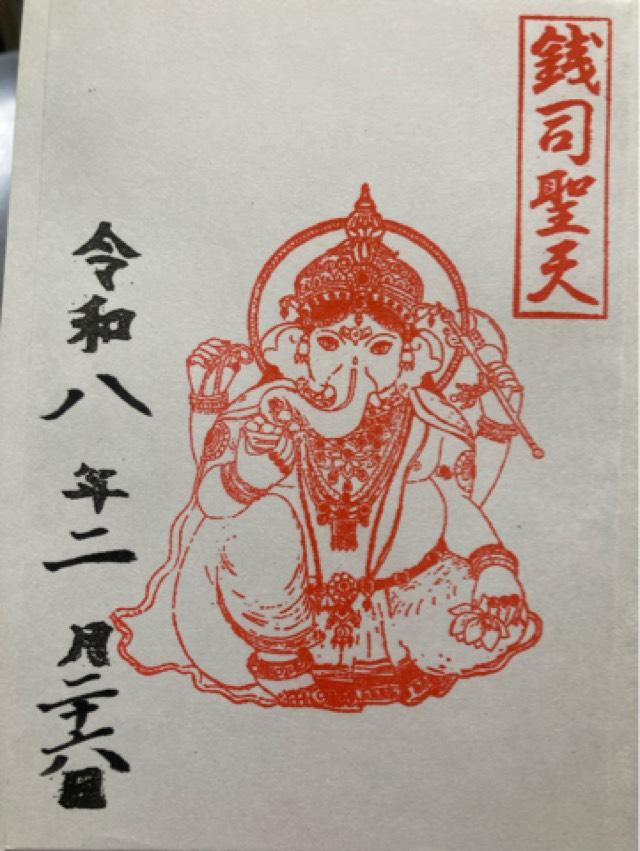 銭司聖天
令和八年二月二十六日